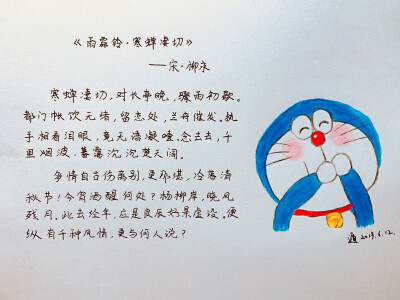 《雨霖铃·寒蝉凄切》
——宋·柳永
寒蝉凄切,对长亭晚,骤雨初歇。
都门帐饮无绪,留恋处,兰舟催发。执
手相看泪眼,竟无语凝噎,念去去,千
里烟波,暮霭沉沉楚天阔。
多情自古伤离别,更那堪,冷落清
秋节!今宵酒醒何处?杨柳岸,晓风
残月。此去经年,应是良辰好景虚设。便
纵有千种风情,更与何人说?
2019.6.12.